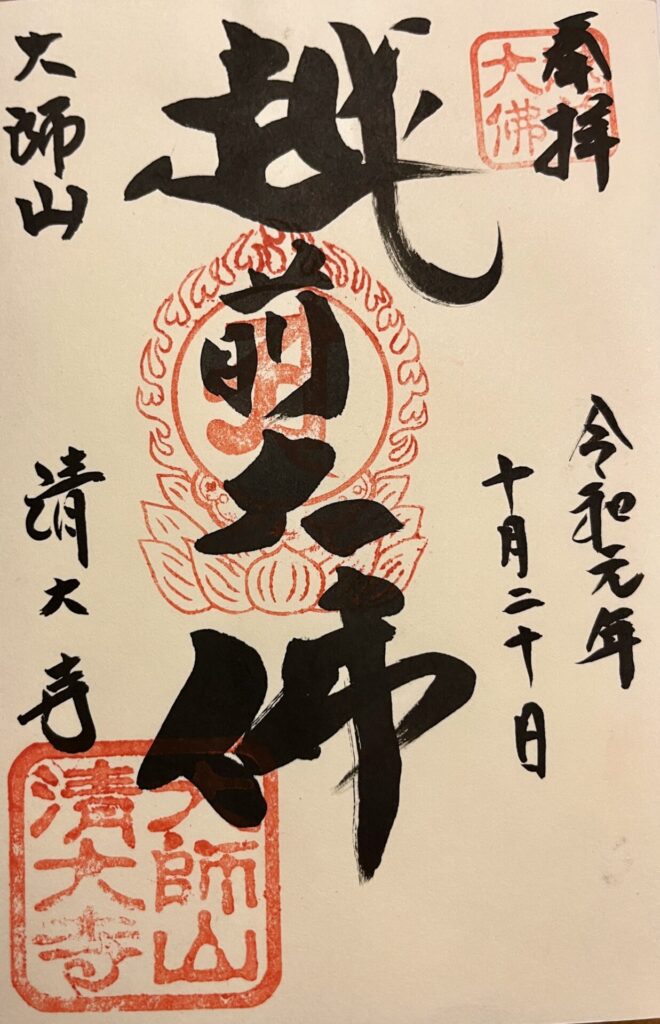 奉拝
越前
大佛
令和元年
十月二十日
越前大佛
大師山
清大寺
大師山
清大寺